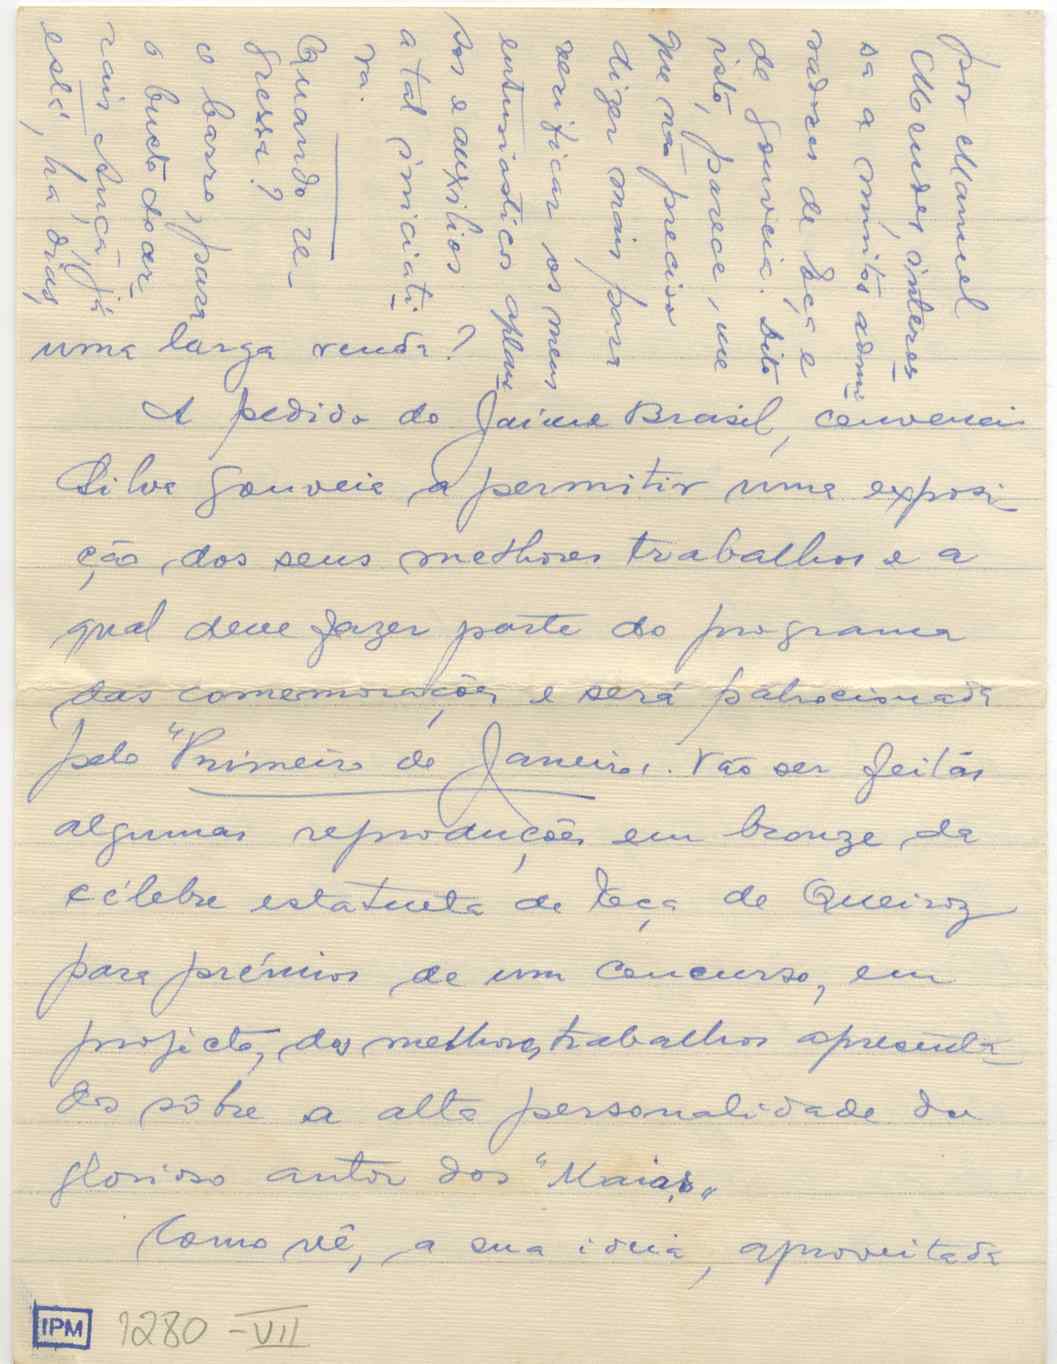 uma larga venda?
A pedido do Jaime Brasil, convenci
Silva Gouveia a permitir uma exposi-
ção dos seus melhores trabalhos e a
qual deve fazer parte do programa
das comemorações e será patrocionada
pelo "Primeiro de Janeiro". Vão ser feitas
algumas reproduções em bronze da
célebre estatueta de Eça de Queiroz
para prémios de um concurso, em
projecto, dos melhores trabalhos apresenta-
dos sôbre a alta personalidade do
glorioso autor dos "Maias"
Como vê, a sua ideia, aproveitada
por Manuel
Mendes, interes-
sa a muitos admi-
radores de Eça e
de Gouveia. Dito
isto, parece-me
que não preciso
dizer mais para
verificar os meus
entusiásticos aplau-
sos e auxílios
a tal iniciati-
va.
Quando re-
gressa?
O barro, para
o busto do ar-
rais Ançã, já
está, há dias,
IPM
1280-VII